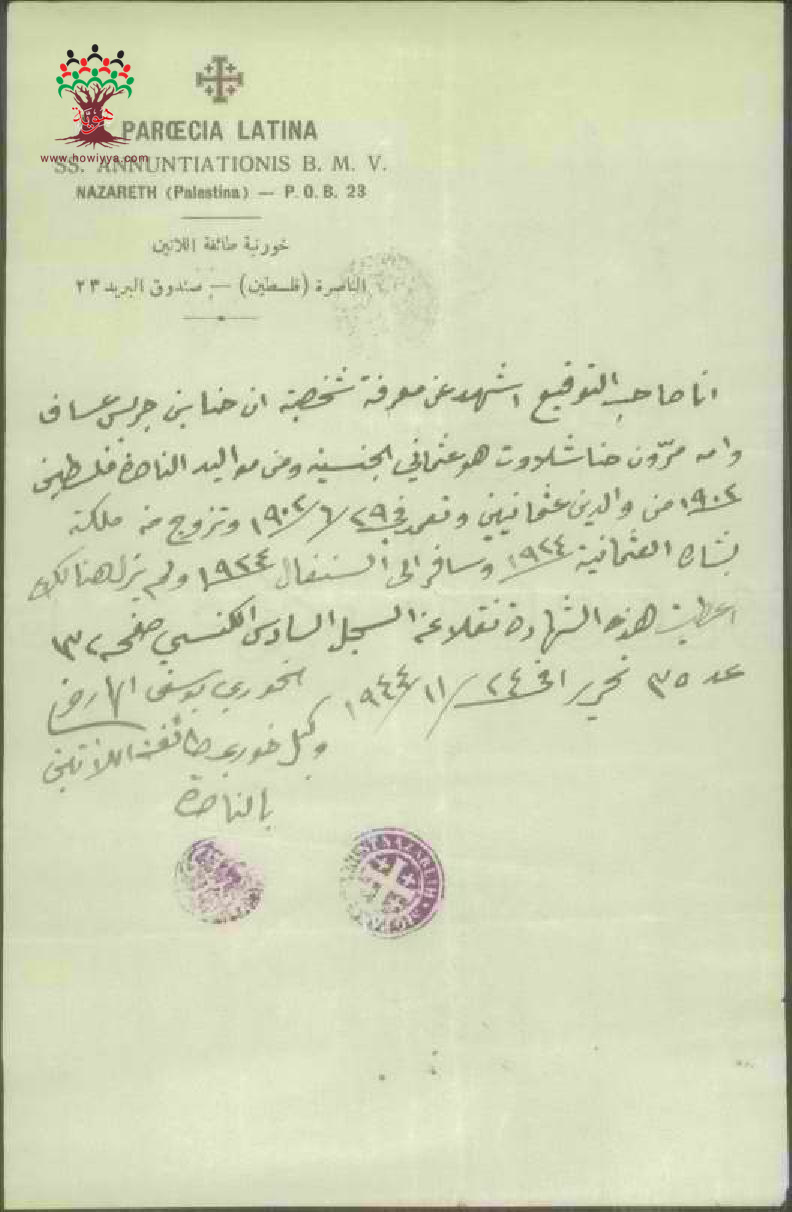 هوية
www.howiyya.com
PARŒCIA LATINA
SS. ANNUNTIATIONIS B. M. V.
NAZARETH (Palestina) — P. O. B. 23
خورنية طائفة اللاتين
الناصرة (فلسطين) — صندوق البريد ٢٣
انا صاحب التوقيع اشهد عن معرفة شخصية ان حنا بن جريس عساف
وامه مرّون حنا شلاوت هو عثماني الجنسية ومن مواليد الناصرة فلسطين
١٩٠٢ من والدين عثمانيين وتعمد في ٢٩/٦/١٩٠٢ وتزوج من ملكة
بشاره العثمانية ١٩٢٤ وسافر الى السنغال ١٩٢٤ ولم يزل هنالك
اعطيت هذه الشهادة نقلا عن السجل السادس الكنسي صفحه ٣٢
عدد ٣٥ تحريرا في ٢٤/١١/١٩٤٤
الخوري يوسف
وكيل خوري طائفة اللاتين
بالناصرة
NAZARETH